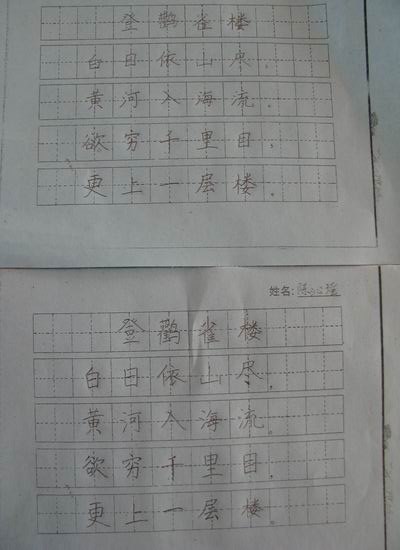 登鹳雀楼
白日依山尽，
黄河入海流。
欲穷千里目，
更上一层楼。
姓名：
登鹳雀楼
白日依山尽，
黄河入海流。
欲穷千里目，
更上一层楼。